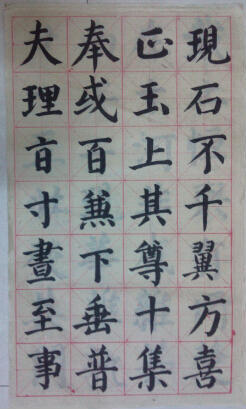 現石不千翼方喜
正玉上其尊十集
奉或百兼下垂普
夫理盲寸晝至事